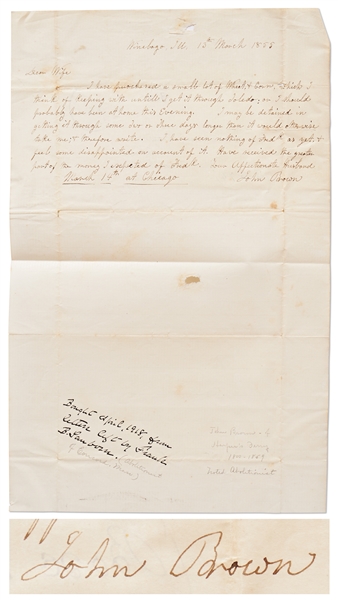 Winebago Ill. 13th March 1855
Dear Wife
I have purchased a small lot of Wheat & Corn, which I
think of keeping with untill I get it through Toledo; or I should
probably have been at home this Evening. I may be detained in
getting it through some two or three days longer than it would otherwise
take me; & therefore write. I have seen nothing of Fredk as yet &
feel some disappointed on account of it. Have received the greater
part of the money I expected of Fredk. Your Affectionate Husband
March 14th at Chicago John Brown
Bought April, 1918, from
letters left by Frank
B. Sanborn.
John Brown of
Harper's Ferry
1800-1859
Noted Abolitionist
John Brown